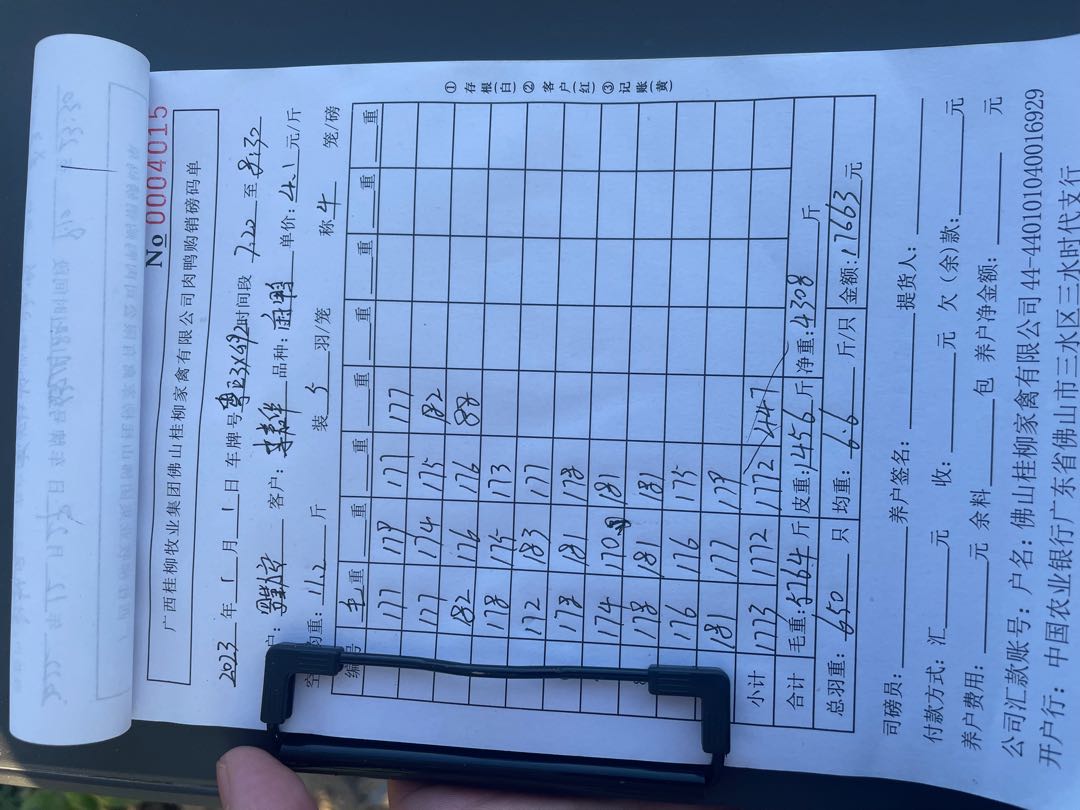 ① 存根(白) ② 客户(红) ③ 记账(黄)
No 0004015
广西桂柳牧业集团佛山桂柳家禽有限公司肉鸭购销磅码单
2023 年 1 月 1 日 车牌号 时间段 7:22 至 8:32
户: 客户: 品种: 单价: 4.1 元/斤
均重: 11.2 斤 装 5 羽/笼 称 4 笼/磅
编号 毛重 重 重 重 重 重 重 重
177 179 177 177
177 174 175 182
182 176 176 88
178 175 173
172 183 177
178 181 178
174 170 181
178 181 181
176 176 175
181 177 179
小计 1773 1772 1772 447
合计 毛重: 5764 斤 皮重: 1456 斤 净重: 4308 斤
总羽重: 650 只 均重: 6.6 斤/只 金额: 17663 元
司磅员: 养户签名: 提货人:
付款方式: 汇 元 收: 元 欠(余)款: 元
养户费用: 元 余料 包 养户净金额: 元
公司汇款账号: 户名: 佛山桂柳家禽有限公司 44-440101040016929
开户行: 中国农业银行广东省佛山市三水区三水时代支行